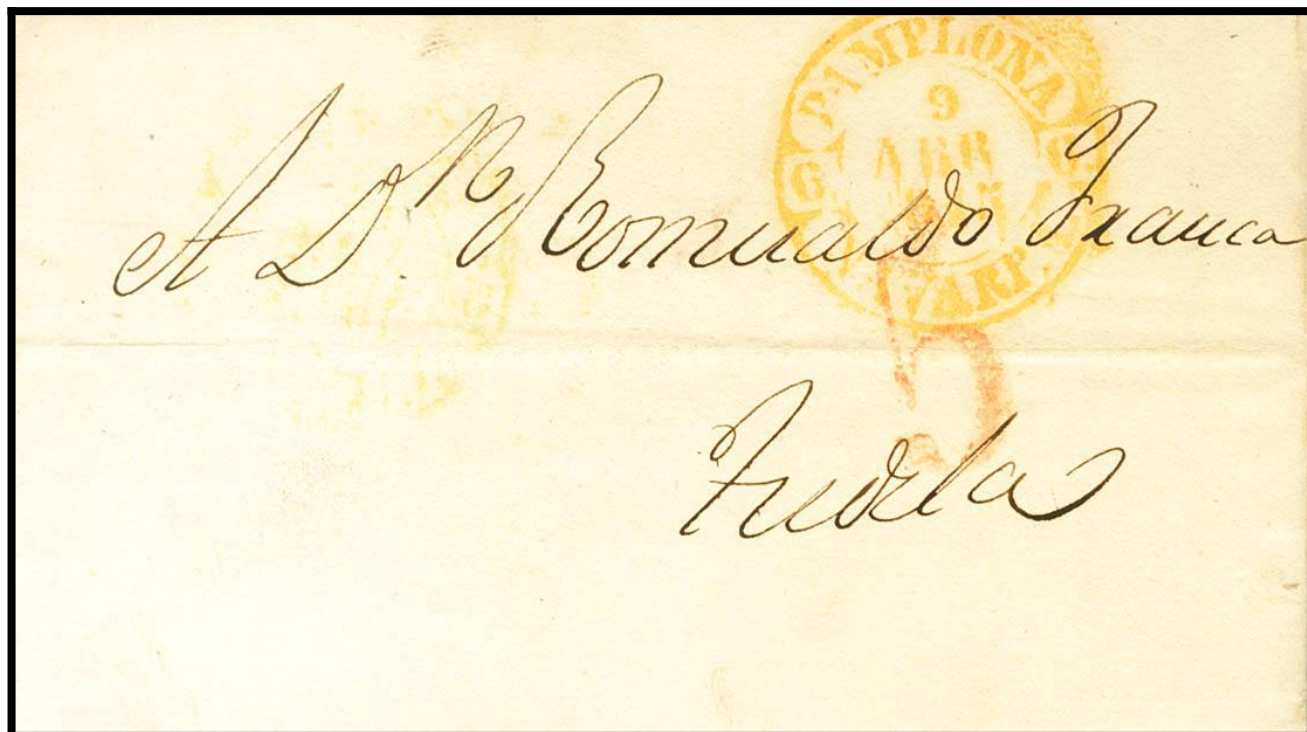 PAMPLONA
9
ABR
A D.n Romualdo Franca
5
Tudela